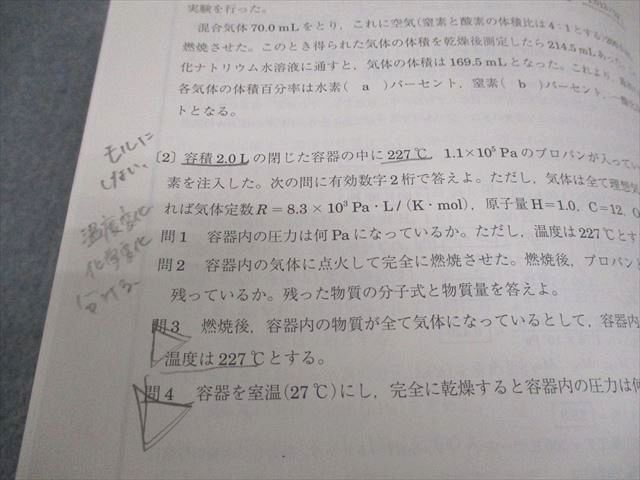 実験を行った。
混合気体 70.0 mL をとり,これに空気(窒素と酸素の体積比は 4:1 とする)
燃焼させた。このとき得られた気体の体積を乾燥後測定したら 214.5 mL あった。
化ナトリウム水溶液に通すと,気体の体積は 169.5 mL となった。これより,
各気体の体積百分率は水素( a )パーセント,窒素( b )パーセント,一酸化
トとなる。
モルに
しない、
〔2〕 容積 2.0 L の閉じた容器の中に 227 ℃, 1.1×10⁵ Pa のプロパンが入ってい
素を注入した。次の問に有効数字 2 桁で答えよ。ただし,気体は全て理想気
れば気体定数 R = 8.3 × 10³ Pa・L/(K・mol),原子量 H=1.0, C=12, O
温度変化
化学変化
分ける
問 1 容器内の圧力は何 Pa になっているか。ただし,温度は 227 ℃とす
問 2 容器内の気体に点火して完全に燃焼させた。燃焼後,プロパン
残っているか。残った物質の分子式と物質量を答えよ。
問 3 燃焼後,容器内の物質が全て気体になっているとして,容器内
温度は 227 ℃とする。
問 4 容器を室温(27 ℃)にし,完全に乾燥すると容器内の圧力は何